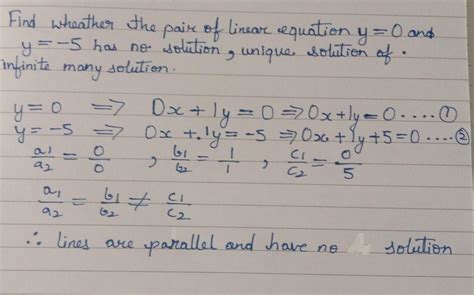 Find wheather the pair of linear equation y=0 and
y=-5 has no solution, unique solution of .
infinite many solution.
y=0 ⟹ 0x+1y=0 ⟹ 0x+1y=0 ....①
y=-5 ⟹ 0x+.1y=-5 ⟹ 0x+1y+5=0 ....②
a1/a2 = 0/0 , b1/b2 = 1/1 , c1/c2 = 0/5
a1/a2 = b1/b2 ≠ c1/c2
∴ lines are parallel and have no solution